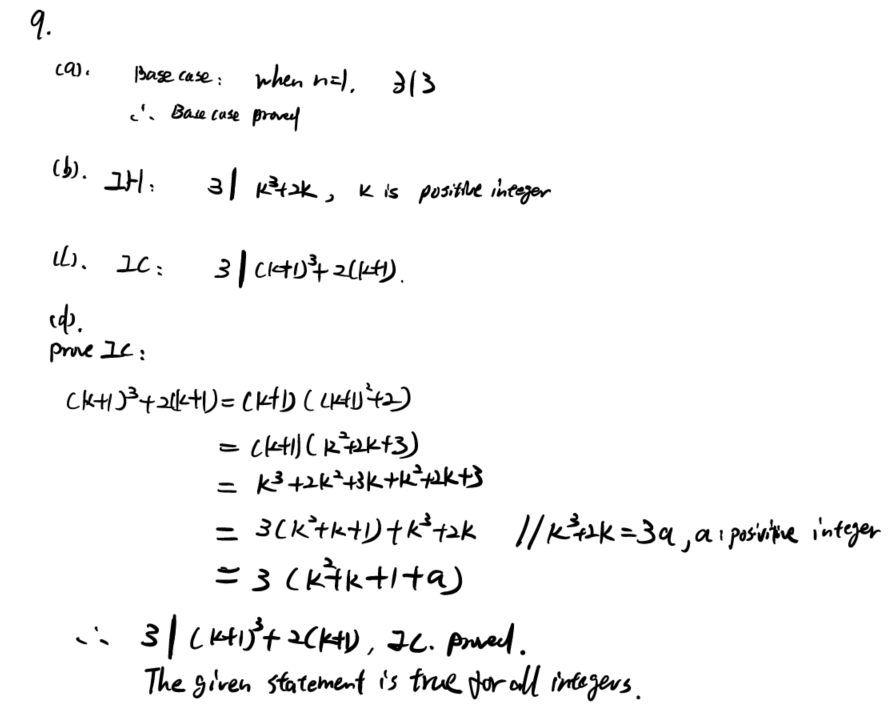 9.
(a). Base case: when n=1. 3|3
∴ Base case proved
(b). IH: 3 | k³+2k, k is positive integer
(c). IC: 3 | (k+1)³+2(k+1).
(d).
prove IC:
(k+1)³+2(k+1)=(k+1)((k+1)²+2)
=(k+1)(k²+2k+3)
= k³+2k²+3k+k²+2k+3
= 3(k²+k+1)+k³+2k //k³+2k=3a, a: positive integer
= 3(k²+k+1+a)
∴ 3 | (k+1)³+2(k+1), IC. proved.
The given statement is true for all integers.